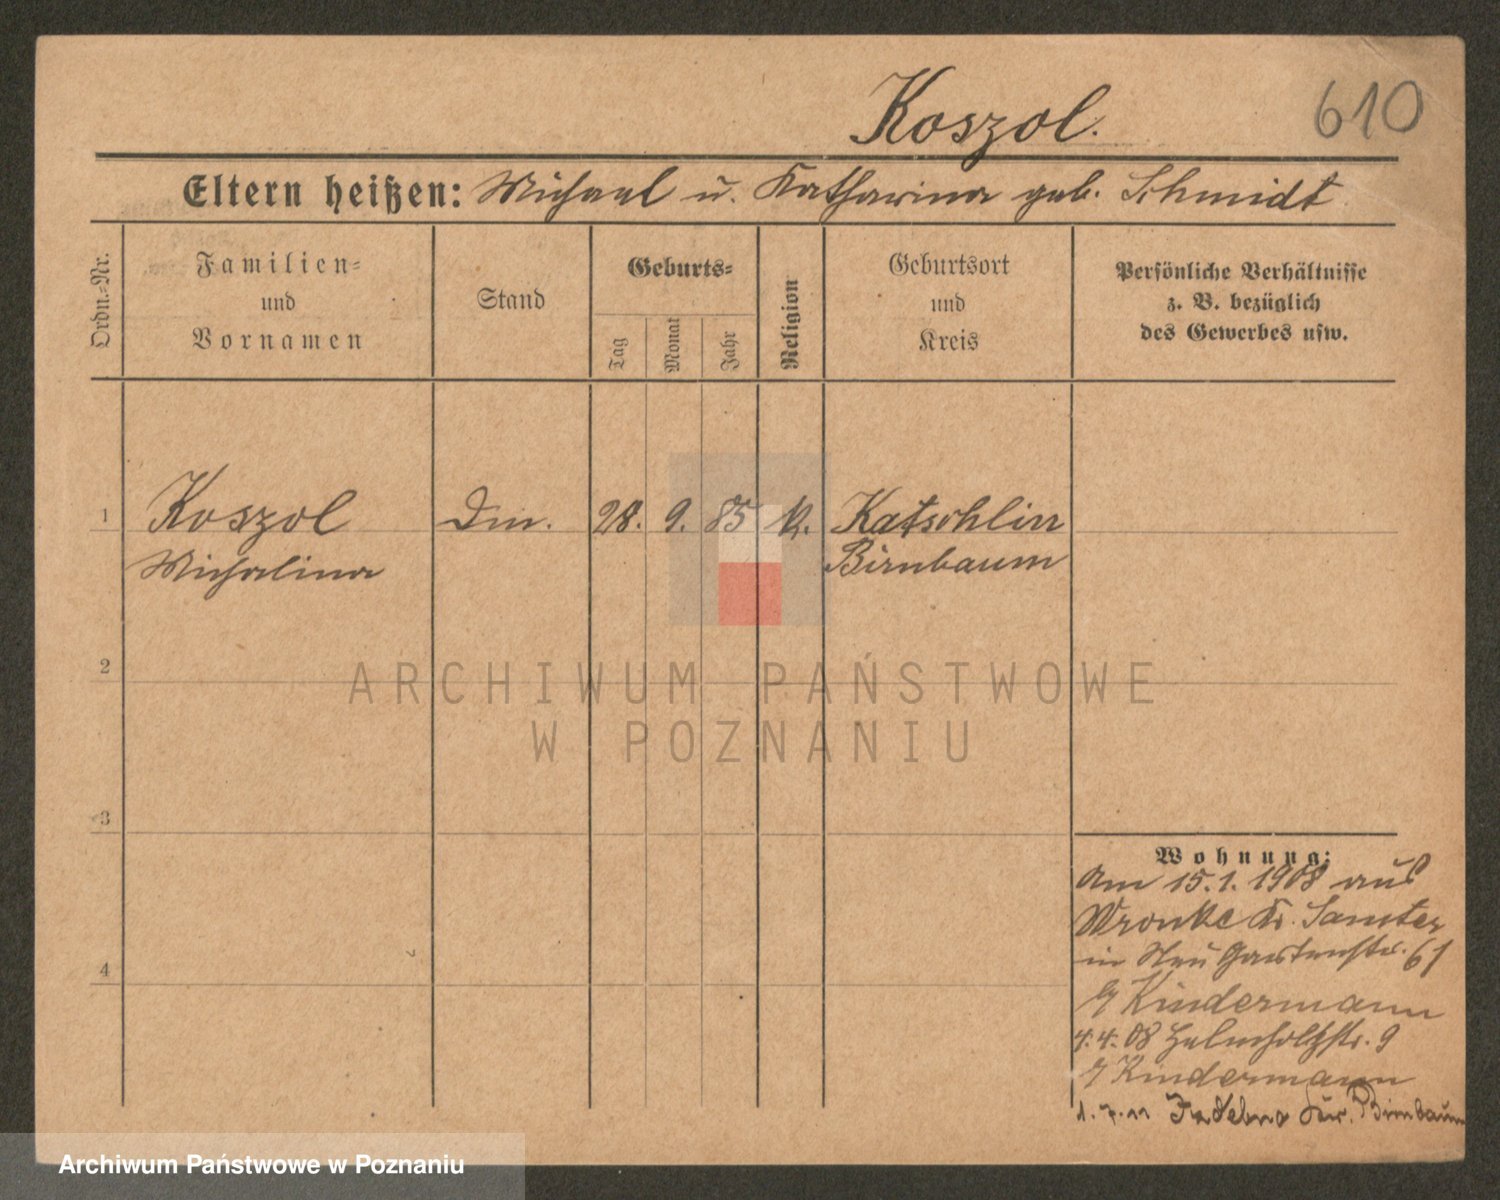 Koszol.
610
Eltern heißen: Michael u. Katharina geb. Schmidt
Ordn.=Nr.
Familien=
und
Vornamen
Stand
Geburts=
Tag
Monat
Jahr
Religion
Geburtsort
und
Kreis
Persönliche Verhältnisse
z. B. bezüglich
des Gewerbes usw.
1
Koszol
Michalina
28. 9. 85 k.
Katschlin
Birnbaum
2
3
4
Wohnung:
Am 15.1.1908 aus
Wronke Kr. Samter
in Neu Gartenstr. 61
Kindermann
4.4.08 Helmholtzstr. 9
Kindermann
1.7.11 Birnbaum
ARCHIWUM PAŃSTWOWE
W POZNANIU
Archiwum Państwowe w Poznaniu